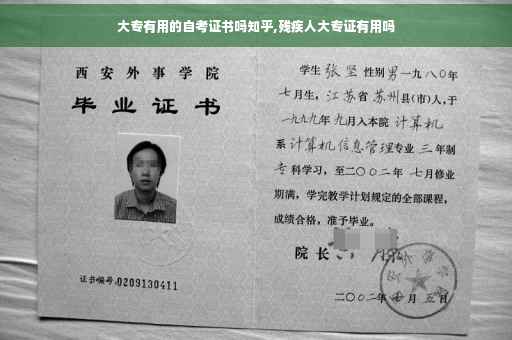 大专有用的自考证书吗知乎,残疾人大专证有用吗
西安外事学院
毕业证书
证书编号:0209130411
学生 张坚 性别 男 一九八〇年
七月生, 江苏省 苏州县(市)人,于
一九九九年 九月入本院 计算机
系 计算机信息管理专业 三 年制
专科学习,至二〇〇二年 七月修业
期满,学完教学计划规定的全部课程,
成绩合格,准予毕业。
院长
二〇〇二年 月 五日